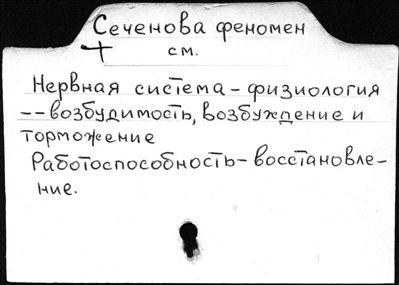 Сеченова феномен
+ см.
Нервная система - физиология
-- возбудимость, возбуждение и
торможение
Работоспособность - восстановле-
ние.